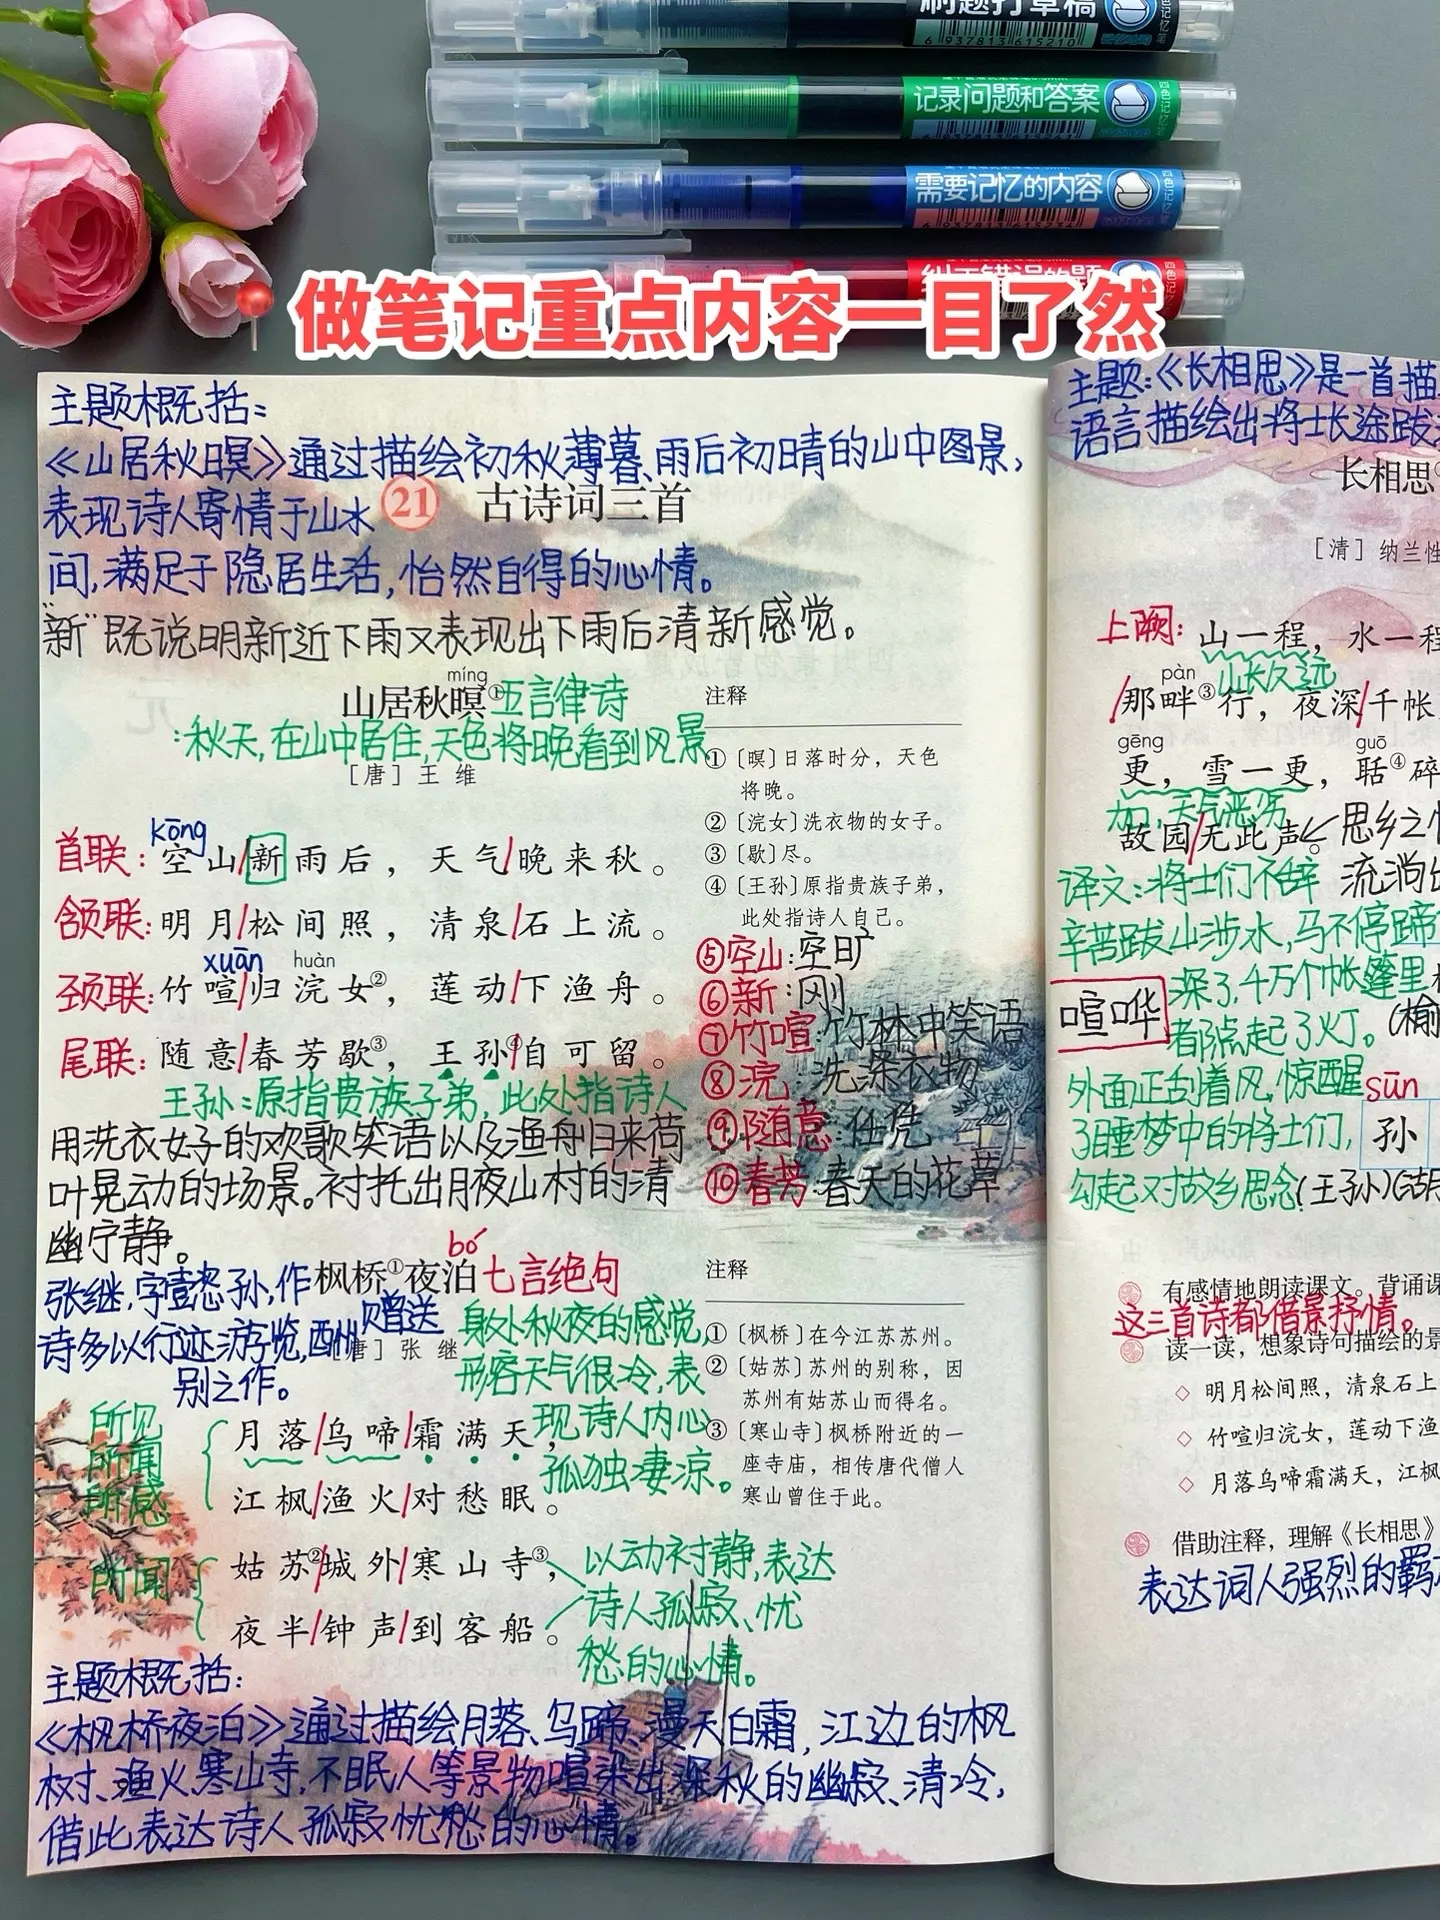 刷题打草稿
6 937813 615210
记录问题和答案
四色记忆笔
需要记忆的内容
四色记忆笔
纠正错误的题
做笔记重点内容一目了然
主题概括:
《山居秋暝》通过描绘初秋薄暮、雨后初晴的山中图景,
表现诗人寄情于山水
21 古诗词三首
间,满足于隐居生活,怡然自得的心情。
"新"既说明新近下雨又表现出下雨后清新感觉。
míng
山居秋暝① 五言律诗
:秋天,在山中居住,天色将晚,看到风景
[唐] 王 维
kōng
首联: 空山/新雨后，天气/晚来秋。
颔联: 明月/松间照，清泉/石上流。
xuān huàn
颈联: 竹喧/归浣女②，莲动/下渔舟。
尾联: 随意/春芳歇③，王孙④/自可留。
王孙:原指贵族子弟,此处指诗人
用洗衣女子的欢歌笑语以及渔舟归来荷
叶晃动的场景。衬托出月夜山村的清
幽宁静。
注释
① 〔暝〕日落时分，天色
将晚。
② 〔浣女〕洗衣物的女子。
③ 〔歇〕尽。
④ 〔王孙〕原指贵族子弟，
此处指诗人自己。
⑤空山:空旷
⑥新:刚
⑦竹喧:竹林中笑语
⑧浣:洗涤衣物
⑨随意:任凭
⑩春芳:春天的花草
bó
枫桥①夜泊 七言绝句
张继,字懿孙,作
诗多以行迹游览,酬赠送
别之作。
[唐] 张 继
身处秋夜的感觉,
形容天气很冷,表
现诗人内心
孤独凄凉。
所见
所闻
所感
月落/乌啼/霜满天，
江枫/渔火/对愁眠。
所闻
姑苏②/城外/寒山寺③，
夜半/钟声/到客船。
以动衬静,表达
诗人孤寂、忧
愁的心情。
注释
① 〔枫桥〕在今江苏苏州。
② 〔姑苏〕苏州的别称，因
苏州有姑苏山而得名。
③ 〔寒山寺〕枫桥附近的一
座寺庙，相传唐代僧人
寒山曾住于此。
主题概括:
《枫桥夜泊》通过描绘月落、乌蹄、漫天白霜,江边的枫
树、渔火、寒山寺,不眠人等景物喧染出深秋的幽寂、清冷,
借此表达诗人孤寂忧愁的心情。
主题:《长相思》是一首描
语言描绘出将士长途跋
长相思
[清] 纳兰性
上阕: 山一程，水一程
山长水远
pàn
/那畔③行，夜深/千帐
gēng guō
更，雪一更，聒④碎
故园/无此声。思乡之
译文:将士们不辞
流淌出
辛苦跋山涉水,马不停蹄
喧哗
深了,千万个帐篷里
都点起了灯。
外面正刮着风,惊醒
sūn
了睡梦中的将士们,
孙
勾起了对故乡思念
(王孙)
有感情地朗读课文。背诵课
这三首诗都借景抒情。
读一读，想象诗句描绘的景
◇ 明月松间照，清泉石上
◇ 竹喧归浣女，莲动下渔
◇ 月落乌啼霜满天，江枫
借助注释，理解《长相思》
表达词人强烈的羁